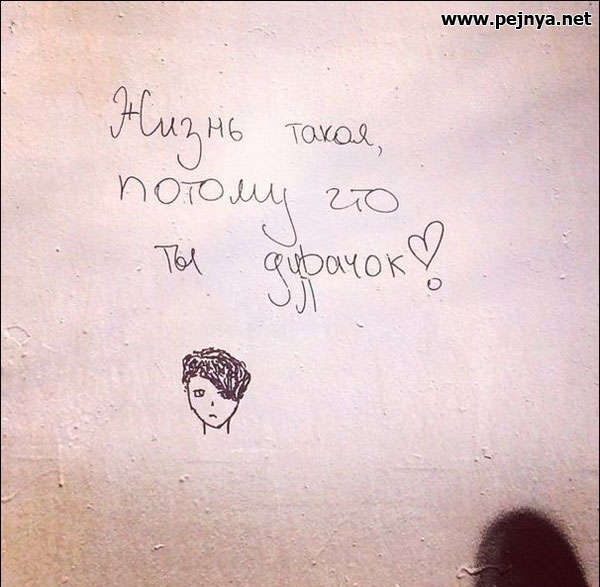 www.pejnya.net
Жизнь такая,
потому что
ты дурачок!